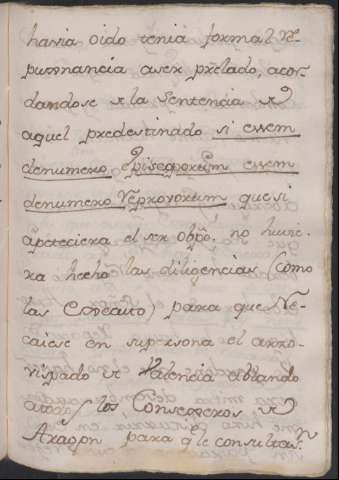 havia oido tenia formal re-
pugnancia a ser prelado, acor-
dandose de la Sentencia de
aquel predestinado si essem
denumero Episcoporum essem
denumero Reprovorum que si
apeteciera el ser obpõ. no huvie-
ra hecho las diligencias (como
las executo) para que Re-
caiese en su persona el arzo-
vispado de Valencia ablando
a todos los Consegeros de
Aragon para q̃ le consultasn